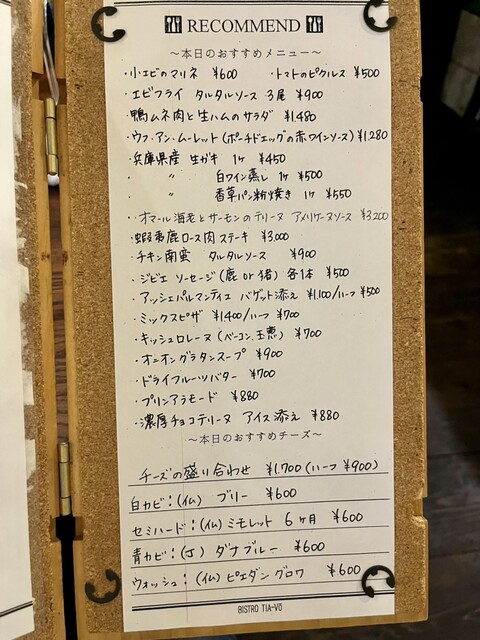 RECOMMEND
～本日のおすすめメニュー～
・小エビのマリネ ¥600 ・トマトのピクルス ¥500
・エビフライ タルタルソース 3尾 ¥900
・鴨ムネ肉と生ハムのサラダ ¥1,480
・ウフ・アン・ムーレット(ポーチドエッグの赤ワインソース) ¥1,280
・兵庫県産 生ガキ 1ヶ ¥450
・ 〃 白ワイン蒸し 1ヶ ¥500
・ 〃 香草パン粉焼き 1ヶ ¥550
・オマール海老とサーモンのテリーヌ アメリケーヌソース ¥3,200
・蝦夷鹿ロース肉ステーキ ¥3,000
・チキン南蛮 タルタルソース ¥900
・ジビエ ソーセージ(鹿 or 猪) 各1本 ¥500
・アッシェパルマンティエ バゲット添え ¥1,100/ハーフ ¥500
・ミックスピザ ¥1400/ハーフ ¥700
・キッシュロレーヌ(ベーコン、玉葱) ¥700
・オニオングラタンスープ ¥900
・ドライフルーツバター ¥700
・プリンアラモード ¥880
・濃厚チョコテリーヌ アイス添え ¥880
～本日のおすすめチーズ～
チーズの盛り合わせ ¥1,700(ハーフ ¥900)
白カビ:(仏) ブリー ¥600
セミハード:(仏) ミモレット 6ヶ月 ¥600
青カビ:(デ) ダナブルー ¥600
ウォッシュ:(仏) ピエダングロワ ¥600
BISTRO TIA-VÔ